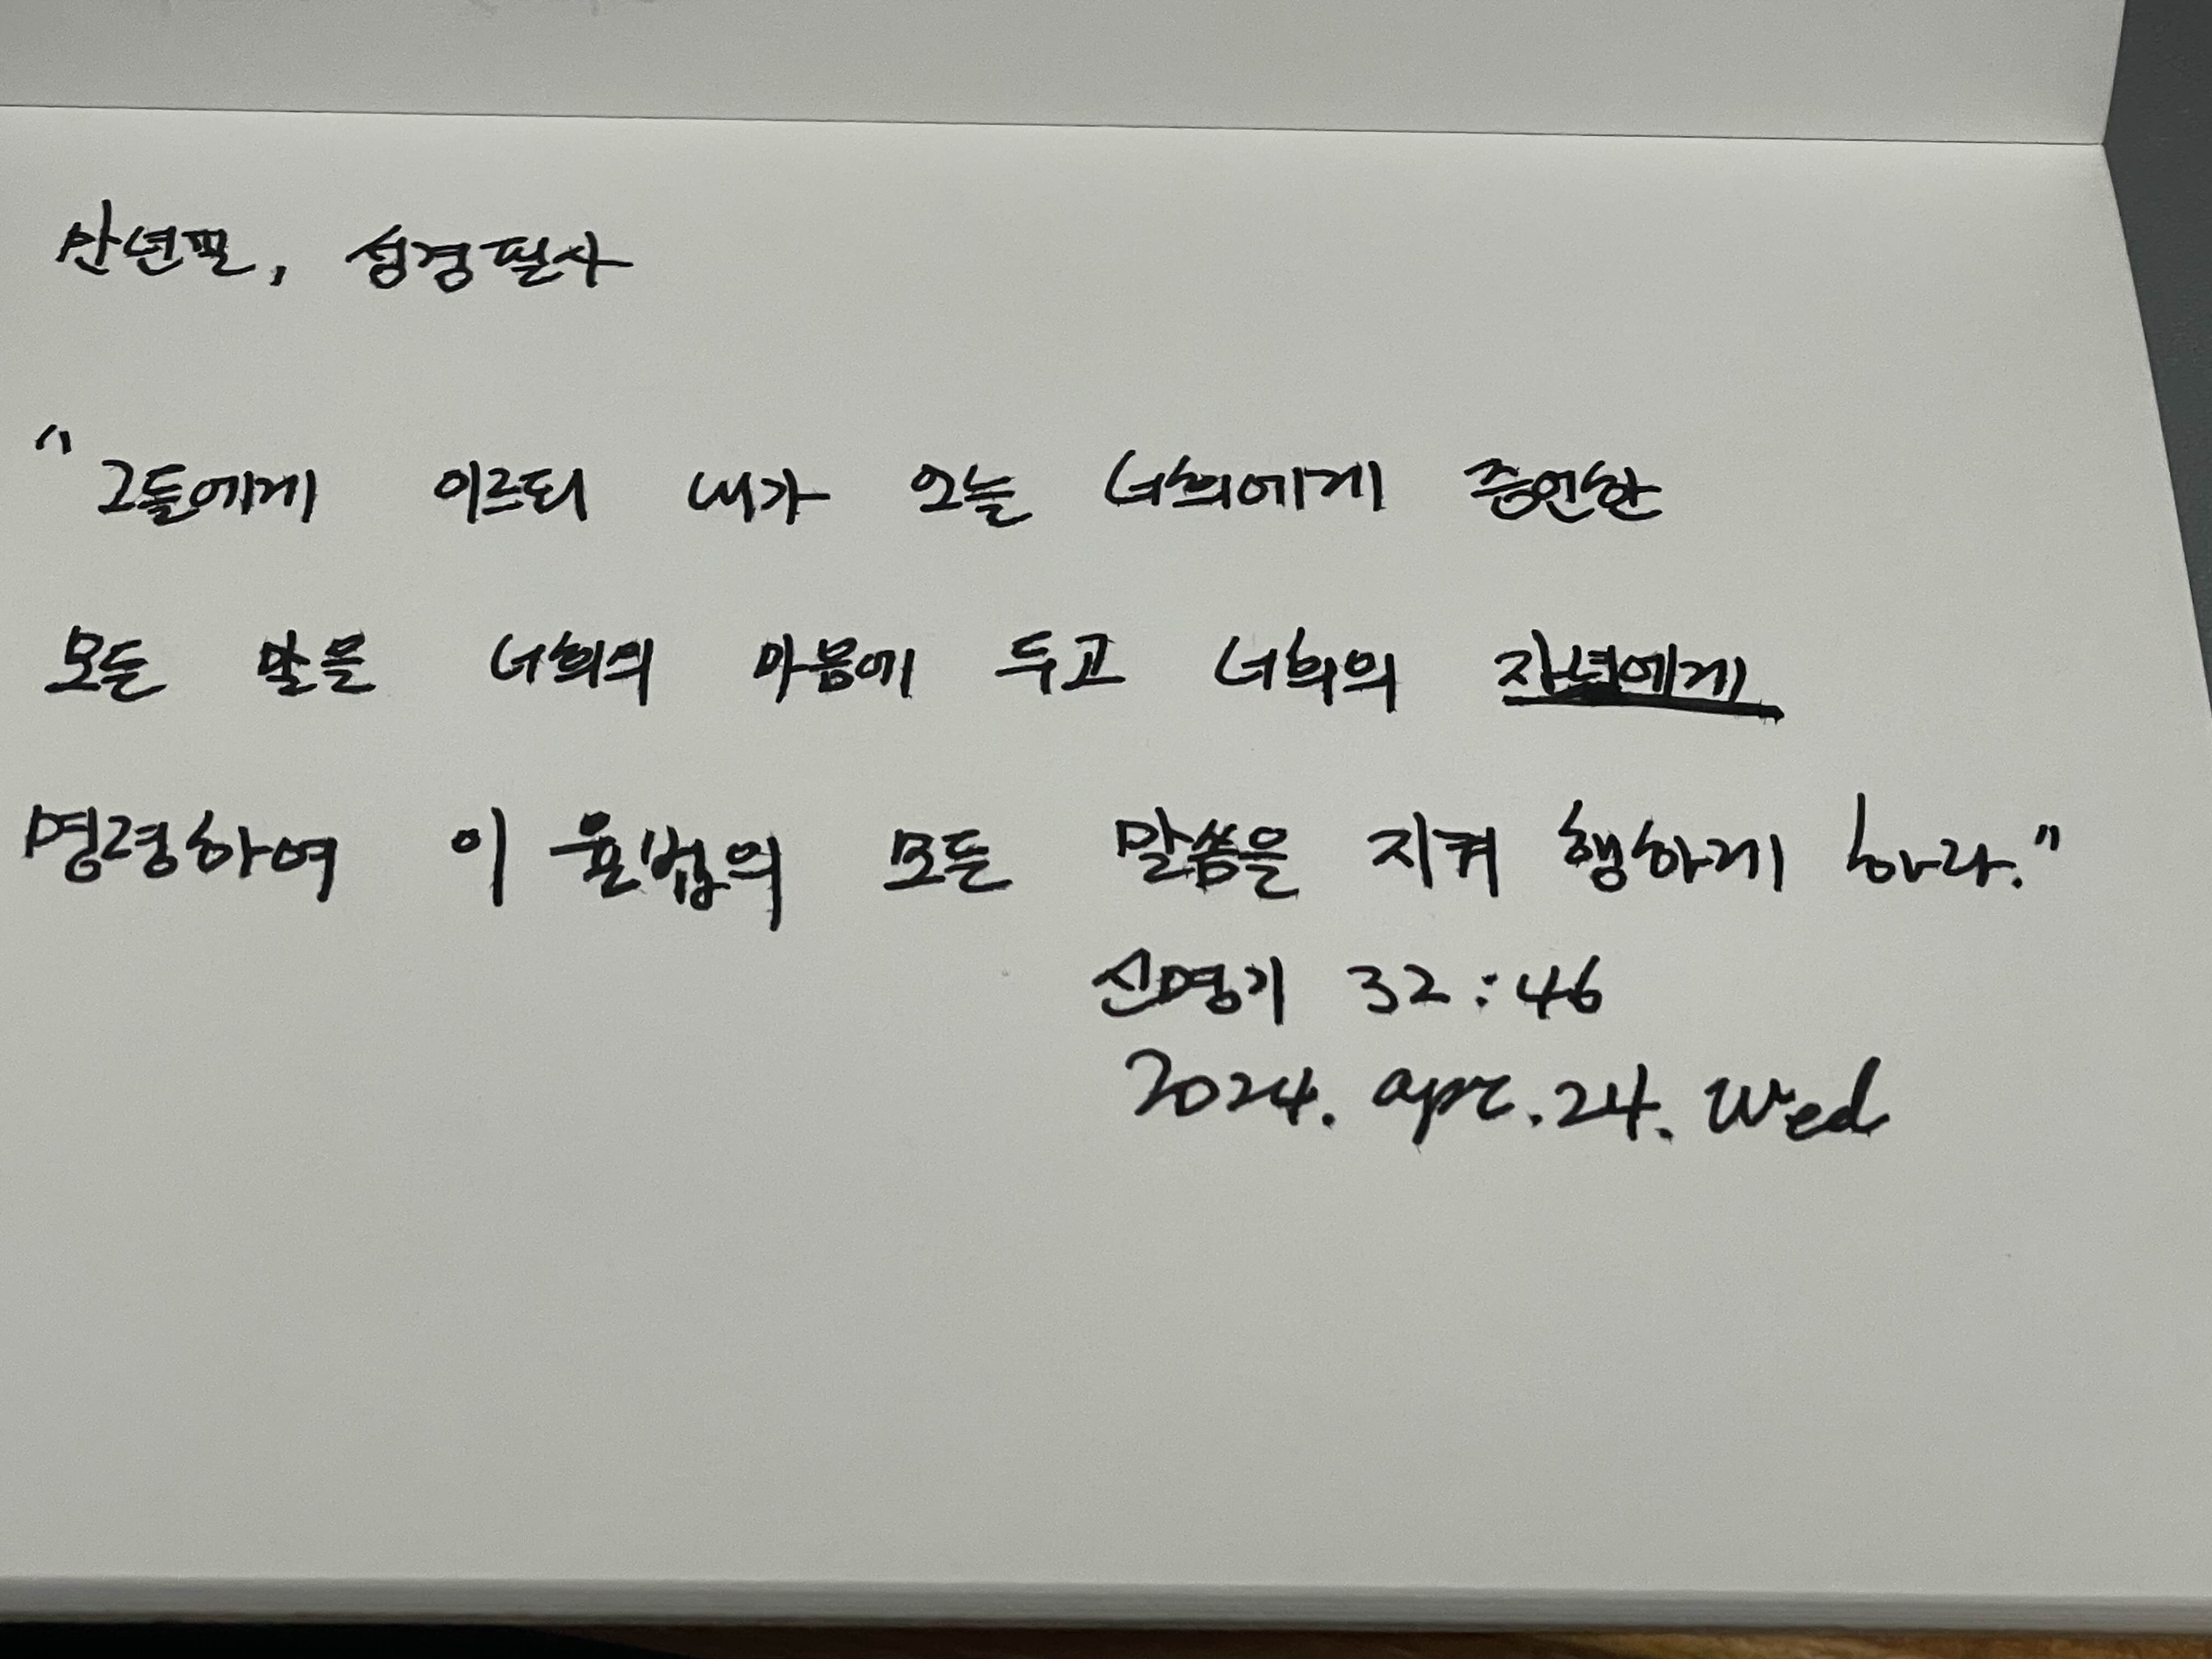 만년필, 성경필사
"그들에게 이르되 내가 오늘 너희에게 증언한
모든 말을 너희의 마음에 두고 너희의 자녀에게
명령하여 이 율법의 모든 말씀을 지켜 행하게 하라."
신명기 32:46
2024. apr. 24. Wed